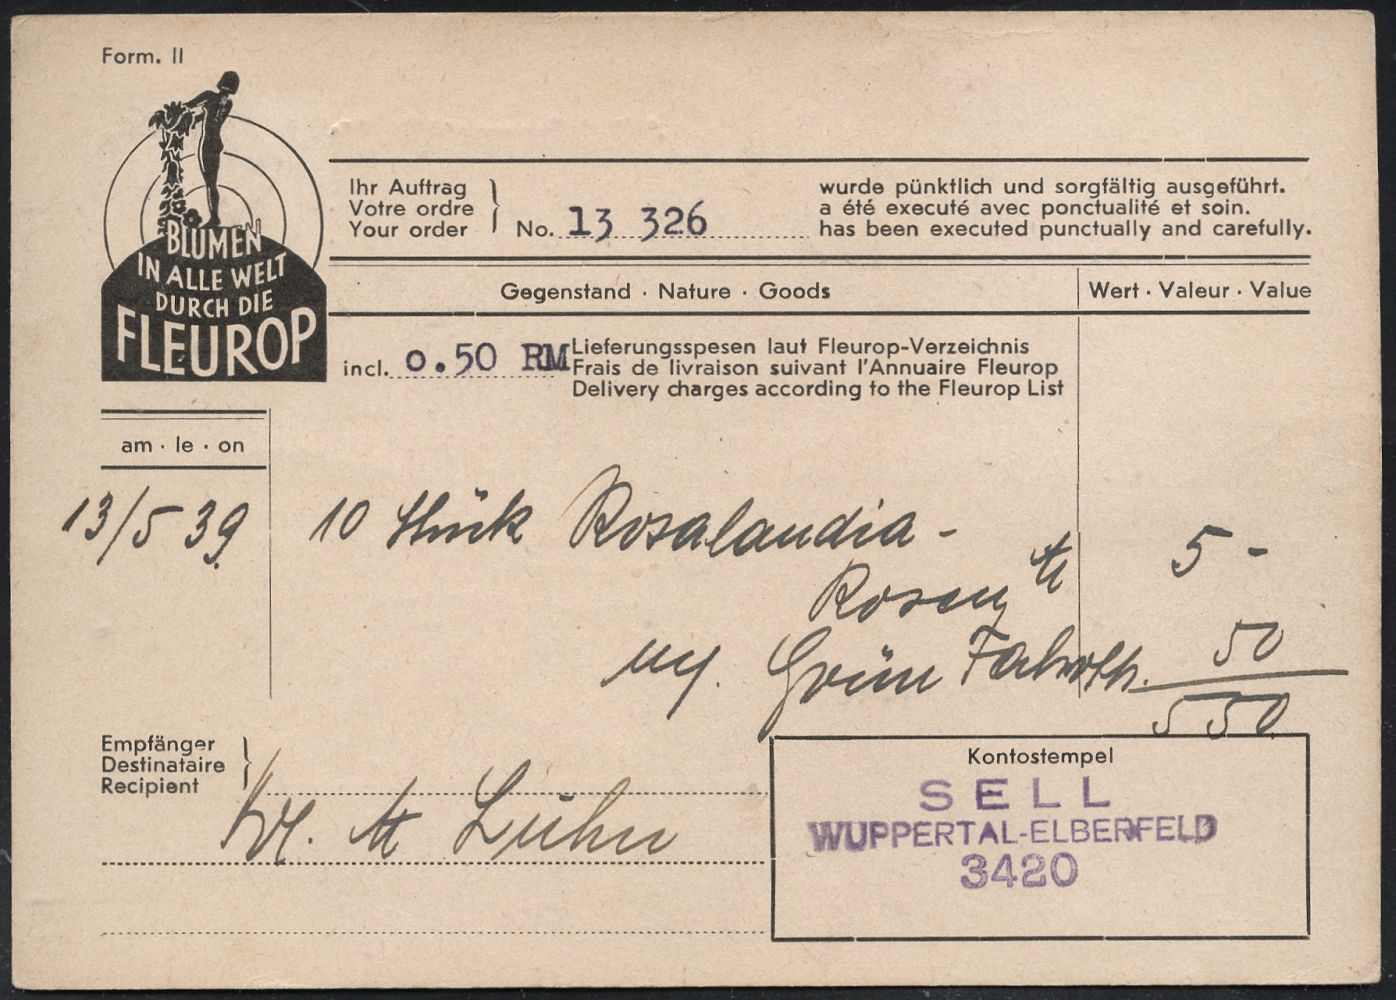 Form. II
BLUMEN
IN ALLE WELT
DURCH DIE
FLEUROP
Ihr Auftrag
Votre ordre
Your order
No. 13 326
wurde pünktlich und sorgfältig ausgeführt.
a été executé avec ponctualité et soin.
has been executed punctually and carefully.
Gegenstand · Nature · Goods
Wert · Valeur · Value
incl. 0.50 RM
Lieferungsspesen laut Fleurop-Verzeichnis
Frais de livraison suivant l'Annuaire Fleurop
Delivery charges according to the Fleurop List
am · le · on
13/5 39
10 Stück Rosalandia-
Rosen
5 -
Grün
50
5 50
Empfänger
Destinataire
Recipient
Luhn
Kontostempel
SELL
WUPPERTAL-ELBERFELD
3420